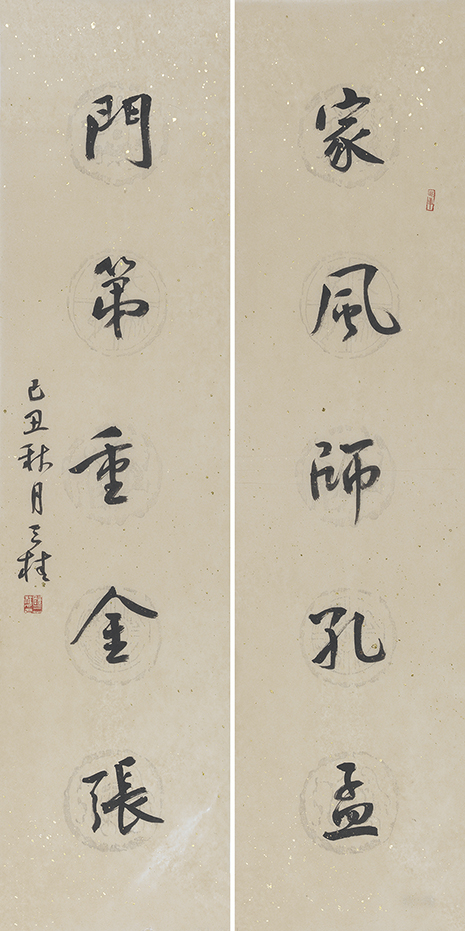 家風師孔孟
門第重金張
己丑秋月三桂